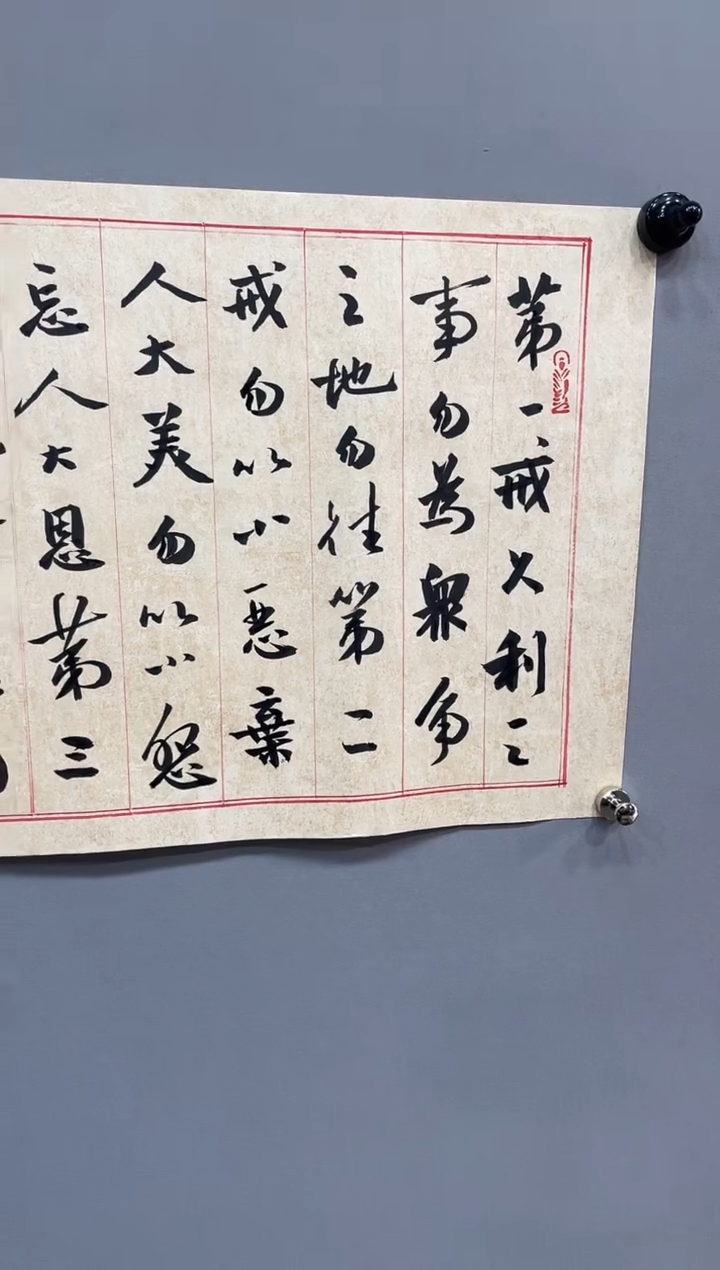 第一戒久利之
事勿為眾爭
之地勿往第二
戒勿以小惡棄
人大美勿以小怨
忘人大恩第三